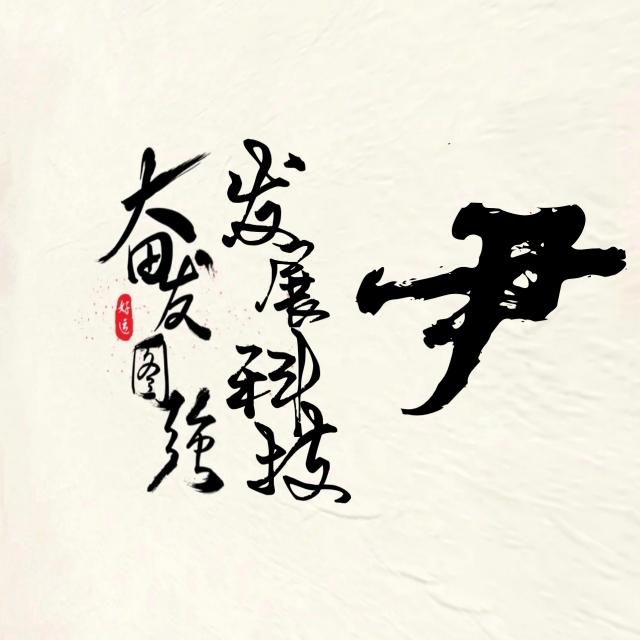 尹
发展科技
奋发图强
好运